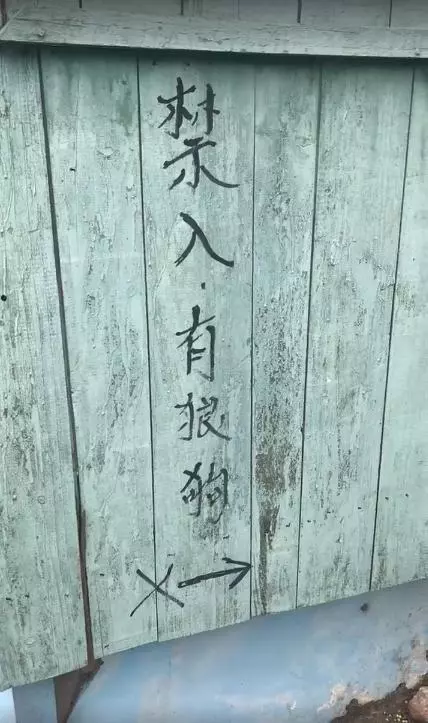 禁入.有狼狗
X→